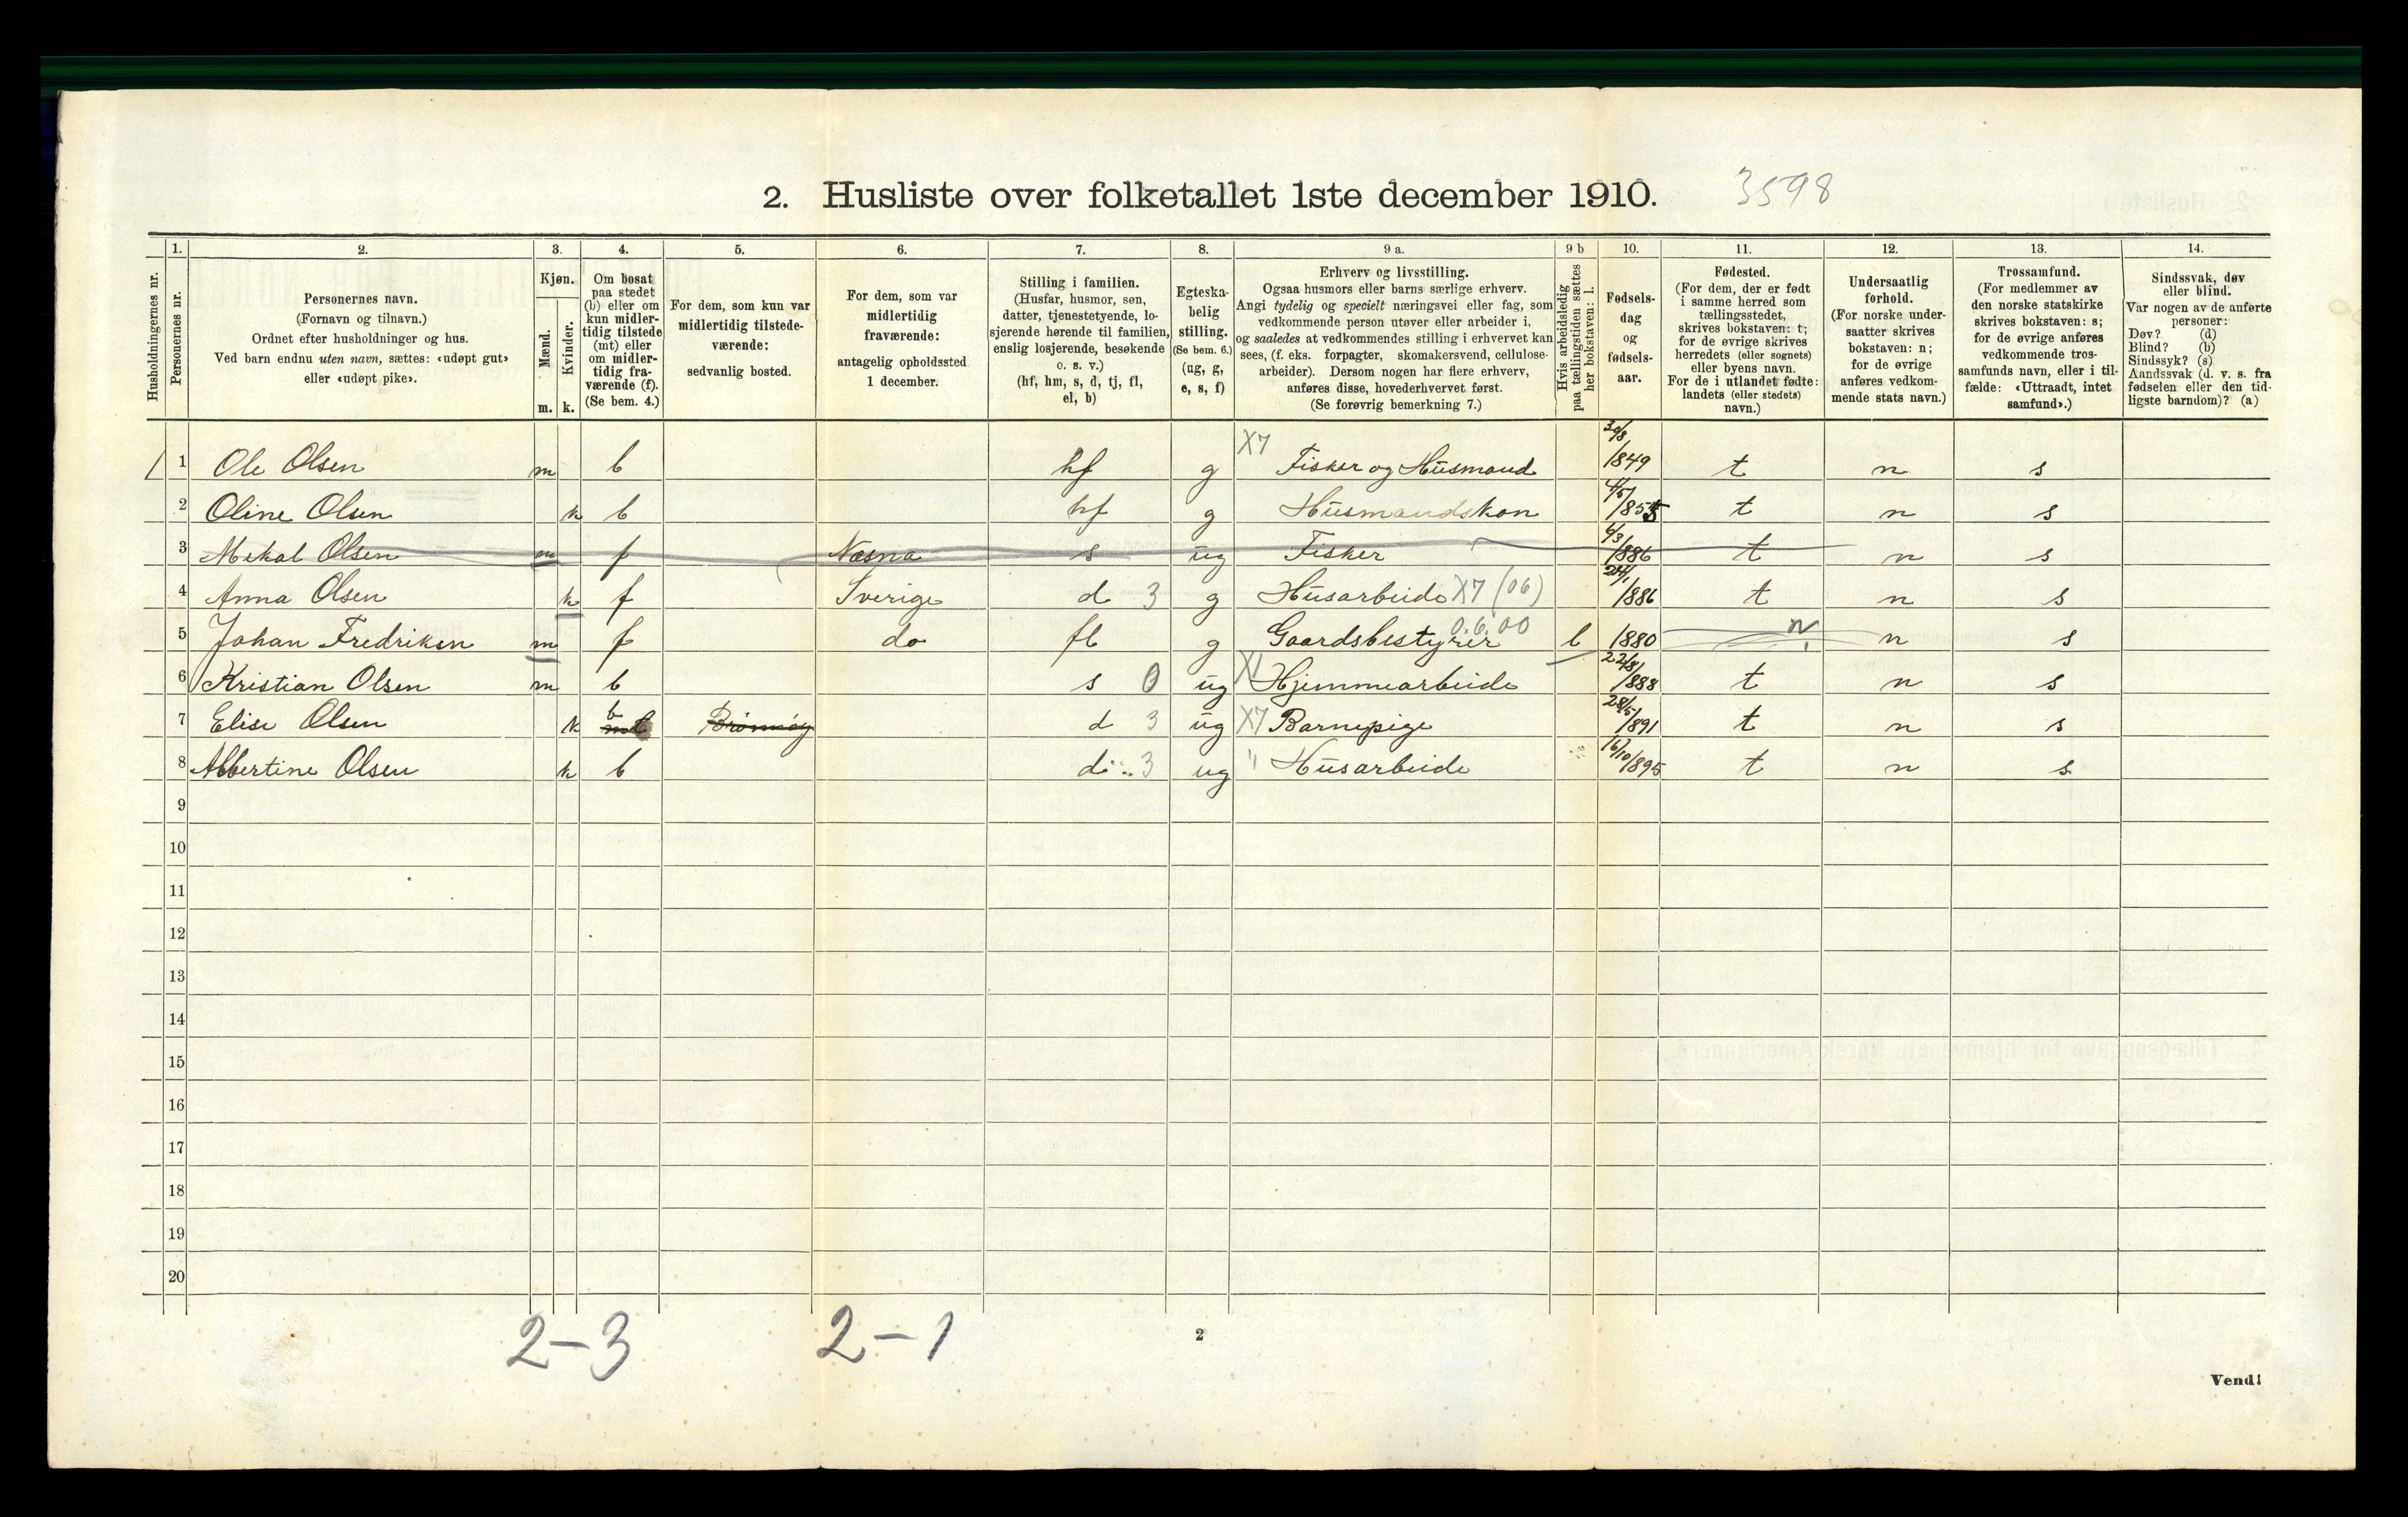 2. Husliste over folketallet 1ste december 1910. 3598
Husholdningernes nr.
1. Personernes nr.
2. Personernes navn.
(Fornavn og tilnavn.)
Ordnet efter husholdninger og hus.
Ved barn endnu uten navn, sættes: «udøpt gut»
eller «udøpt pike».
3. Kjøn.
Mænd. m.
Kvinder. k.
4. Om bosat
paa stedet
(b) eller om
kun midler-
tidig tilstede
(mt) eller
om midler-
tidig fra-
værende (f).
(Se bem. 4.)
5. For dem, som kun var
midlertidig tilstede-
værende:
sedvanlig bosted.
6. For dem, som var
midlertidig
fraværende:
antagelig opholdssted
1 december.
7. Stilling i familien.
(Husfar, husmor, søn,
datter, tjenestetyende, lo-
sjerende hørende til familien,
enslig losjerende, besøkende
o. s. v.)
(hf, hm, s, d, tj, fl,
el, b)
8. Egteska-
belig
stilling.
(Se bem. 6.)
(ug, g,
e, s, f)
9 a. Erhverv og livsstilling.
Ogsaa husmors eller barns særlige erhverv.
Angi tydelig og specielt næringsvei eller fag, som
vedkommende person utøver eller arbeider i,
og saaledes at vedkommendes stilling i erhvervet kan
sees, (f. eks. forpagter, skomakersvend, cellulose-
arbeider). Dersom nogen har flere erhverv,
anføres disse, hovederhvervet først.
(Se forøvrig bemerkning 7.)
9 b Hvis arbeidsledig
paa tællingstiden sættes
her bokstaven: l.
10. Fødsels-
dag
og
fødsels-
aar.
11. Fødested.
(For dem, der er født
i samme herred som
tællingsstedet,
skrives bokstaven: t;
for de øvrige skrives
herredets (eller sognets)
eller byens navn.
For de i utlandet fødte:
landets (eller stedets)
navn.)
12. Undersaatlig
forhold.
(For norske under-
saatter skrives
bokstaven: n;
for de øvrige
anføres vedkom-
mende stats navn.)
13. Trossamfund.
(For medlemmer av
den norske statskirke
skrives bokstaven: s;
for de øvrige anføres
vedkommende tros-
samfunds navn, eller i til-
fælde: «Uttraadt, intet
samfund».)
14. Sindssvak, døv
eller blind.
Var nogen av de anførte
personer:
Døv? (d)
Blind? (b)
Sindssyk? (s)
Aandssvak (d. v. s. fra
fødselen eller den tid-
ligste barndom)? (a)
1 Ole Olsen m b hf g X7 Fisker og Husmand 30/8 1849 t n s
2 Oline Olsen k b hf g Husmandskon 4/5 1855 t n s
3 Mekal Olsen m f Næsna s ug Fisker 6/3 1886 t n s
4 Anna Olsen k f Sverige d 3 g Husarbeide X7 (06) 24/1 1886 t n s
5 Johan Fredriksen m f do fl g Gaardsbestyrer 0.6.00 l 1880 n n s
6 Kristian Olsen m b s 0 ug X1 Hjemmearbeide 22/8 1888 t n s
7 Elise Olsen k b mt Brönnöy d 3 ug X7 Barnepige 28/5 1891 t n s
8 Albertine Olsen k b d 3 ug " Husarbeide 16/10 1895 t n s
9
10
11
12
13
14
15
16
17
18
19
20
2-3 2-1
2
Vend!